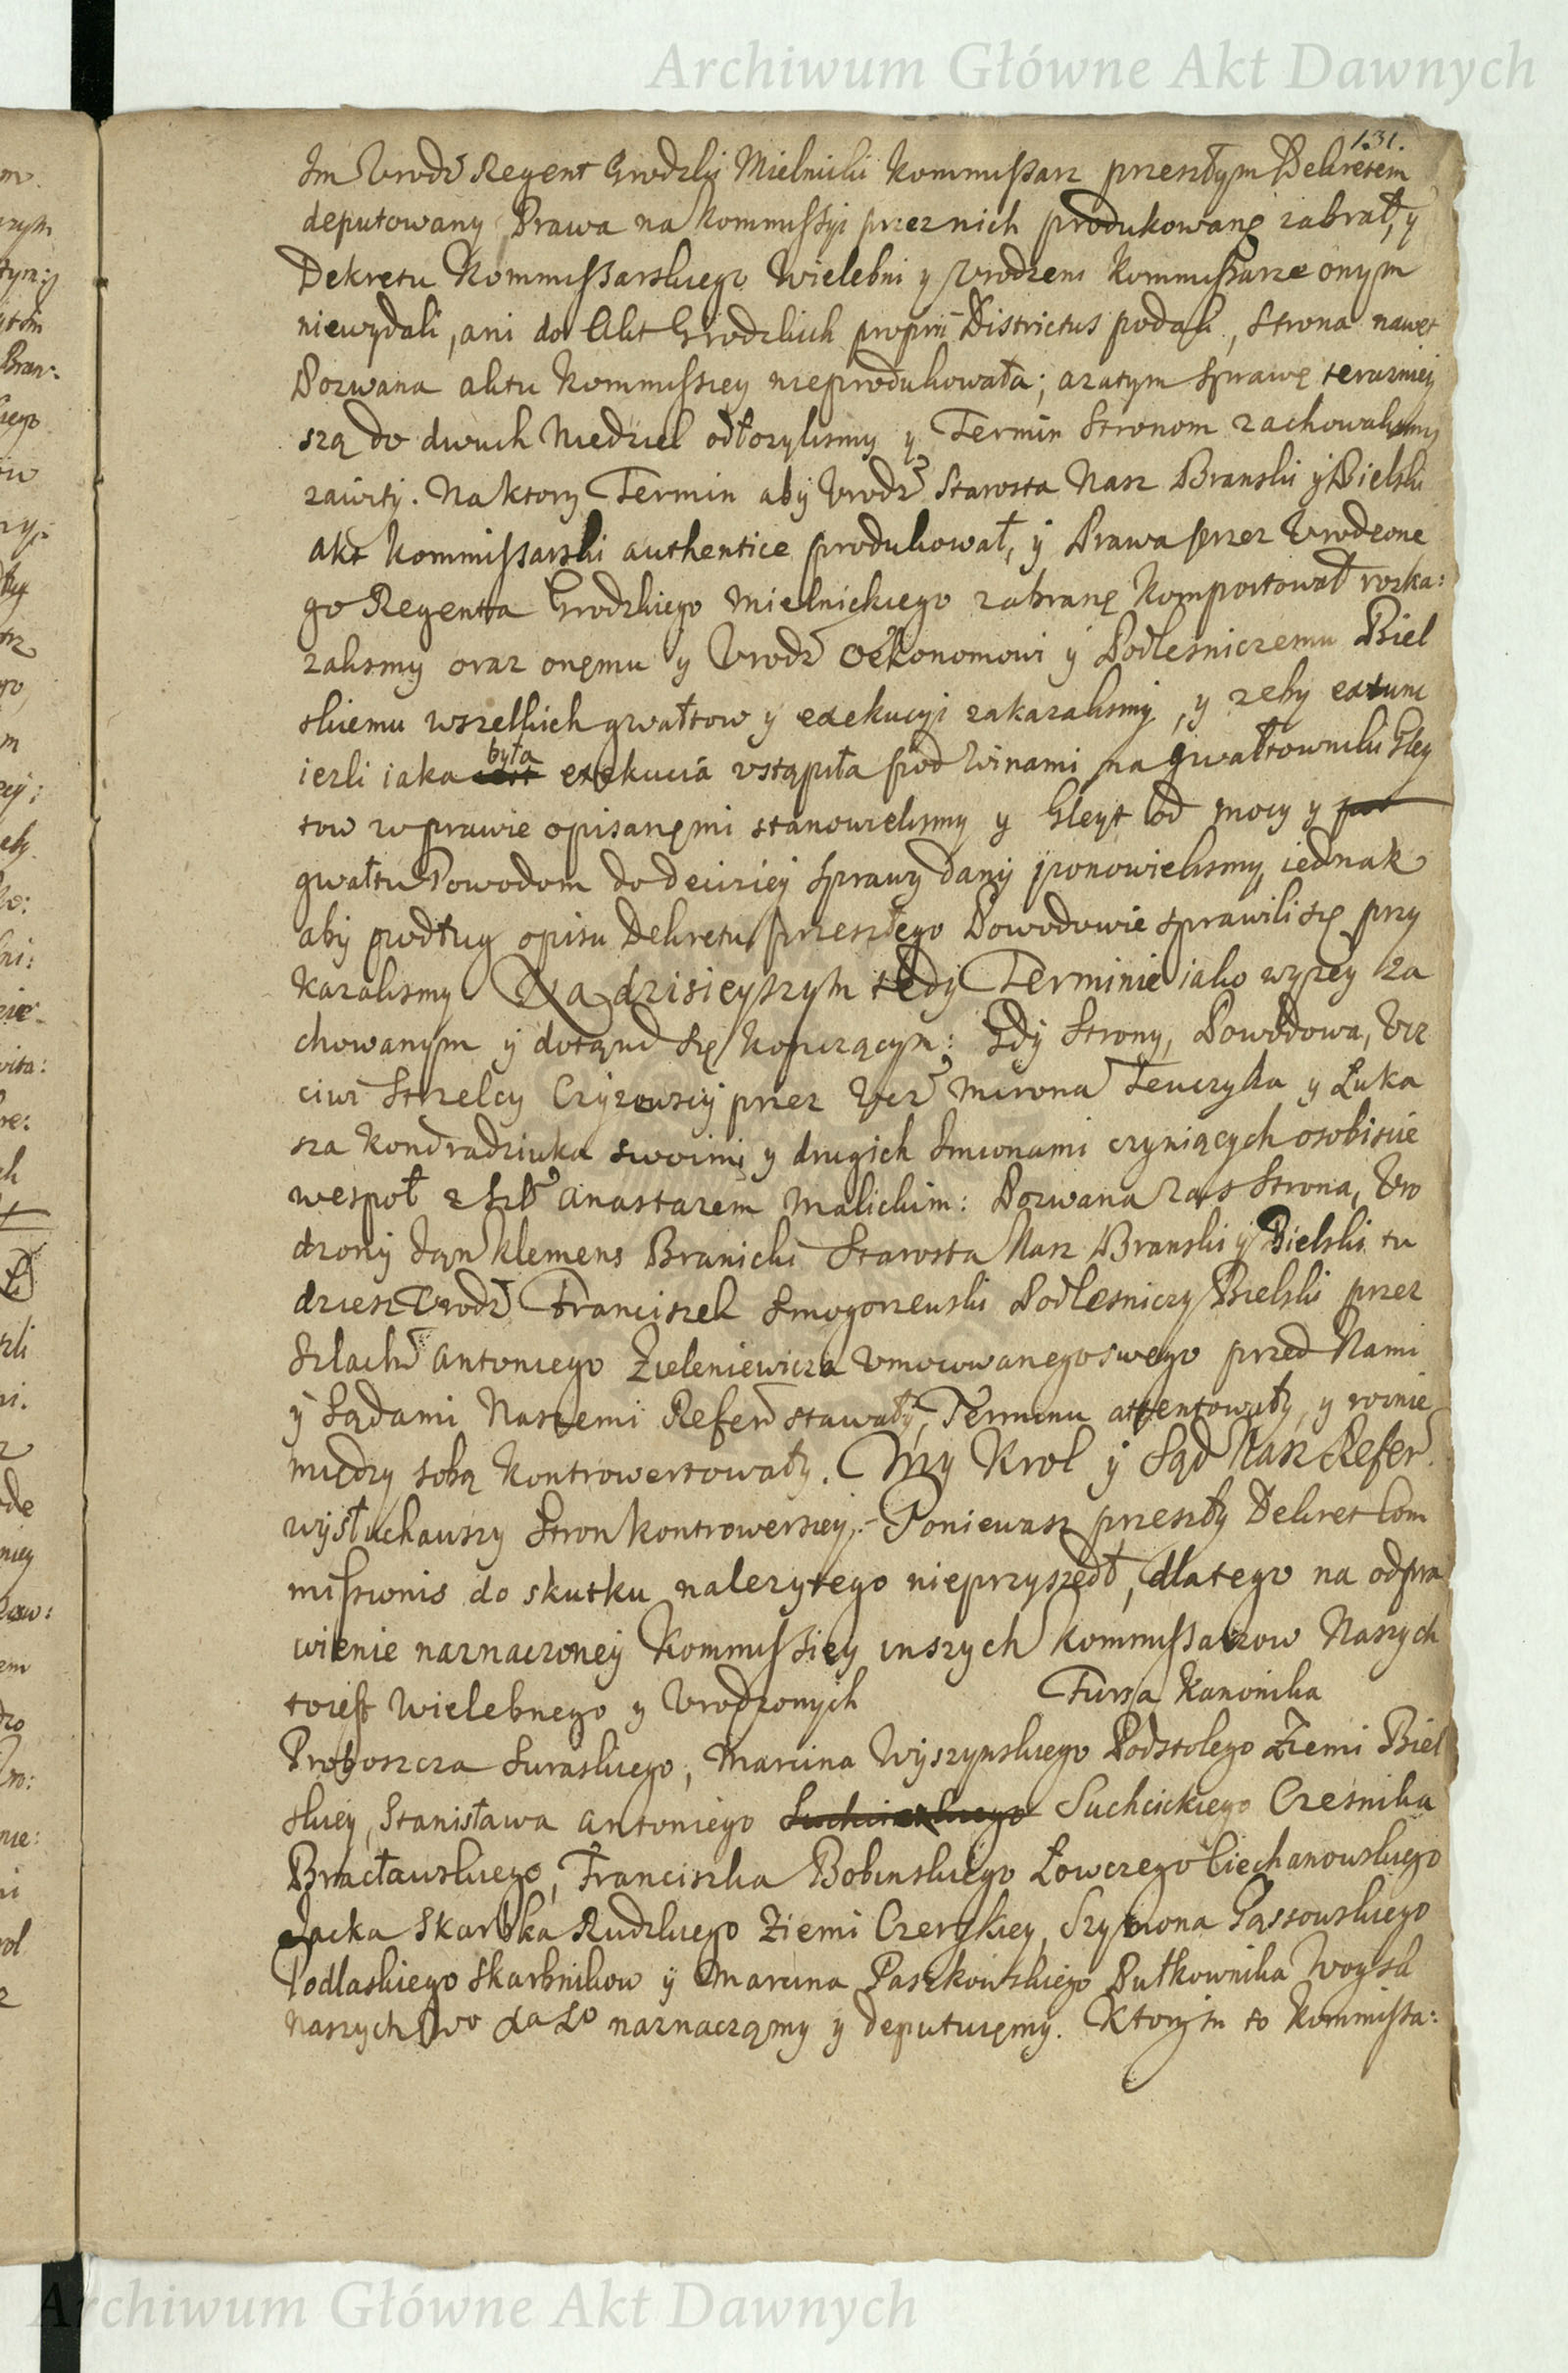 Archiwum Główne Akt Dawnych
131.
Im Vrodź Regent Grodzki Mielnicki Kommissarz przeszłym Dekretem
deputowany Prawa na Kommissyi przez nich produkowanę zabrał, y
Dekretu Kommissarskiego Wielebni y Vrodzeni Kommissarze onym
niewydali, ani do Akt Grodzkich proprii Districtus podali, Strona nawet
Pozwana aktu Kommissiey nieprodukowała; azatym Sprawę terazniey
szą do dwuch Niedziel odłozylismy y Termin Stronom zachowalismy
zawity. Naktory Termin aby Vrodź Starosta Nasz Branski y Bielski
akt Kommissarski authentice produkował, y Prawa przez Vrodzone
go Regenta Grodzkiego Mielnickiego zabranę Komportował rozka:
zalismy oraz onęmu y Vrodź Oekonomowi y Podlesniczemu Biel
skiemu wszelkich gwałtow y exekucyi zakazalismy, y zeby extunc
iezli iaka była exekucia vstąpiła pod winami na gwałtowniki Gley
tow w prawie opisanęmi stanowielismy y Gleyt od mocy y
gwałtu Powodom do deciziey Sprawy dany ponowielismy, iednak
aby podług opisu Dekretu przeszłego Powodowie sprawili się przy
kazalismy. Na dzisieyszym tedy Terminie iako wyzey za
chowanym y dotąnd się kończącym: Gdy Strony, Powodowa, Vcz
ciwi Strzelcy Czyzowscy przez Vcz Mirona Tenczyka y Łuka
sza Kondradziuka swoimi y drugich Imionami czyniących osobiscie
wespoł z Szl Anastazem Malickim: Pozwana zas Strona, Vro
dzony Jąn Klemens Branicki Starosta Nasz Branski y Bielski tu
dziesz Vrodź Franciszek Smogorzewski Podlesniczy Bielski przez
Szlach Antoniego Zieleniewicza Vmocowanego swego przed Nami
y Sądami Naszemi Refer stawały, Terminu attentowały, y roznie
między sobą kontrowertowały. My Krol y Sąd Nasz Refer
wysłuchawszy Stron kontrowersiey.- Poniewasz przeszły Dekret Com
missionis do skutku nalezytego nieprzyszedł, dlatego na odpra
wienie naznaczoney Kommissiey inszych Kommissarzow Naszych
toiest Wielebnego y Vrodzonych Fursa Kanonika
Proboszcza Suraskiego, Marcina Wyszynskiego Podstolego Ziemi Biel
skiey, Stanisława Antoniego Suchcickiego Czesnika
Bracławskiego, Franciszka Bobinskiego Łowczego Ciechanowskiego
Jacka Skarbka Rudzkiego Ziemi Czerskiey, Szymona Gąssowskiego
Podlaskiego Skarbnikow y Marcina Paszkowskiego Pułkownika Woysk
Naszych naznacząmy y deputuięmy. Ktorym to Kommissa:
Archiwum Główne Akt Dawnych